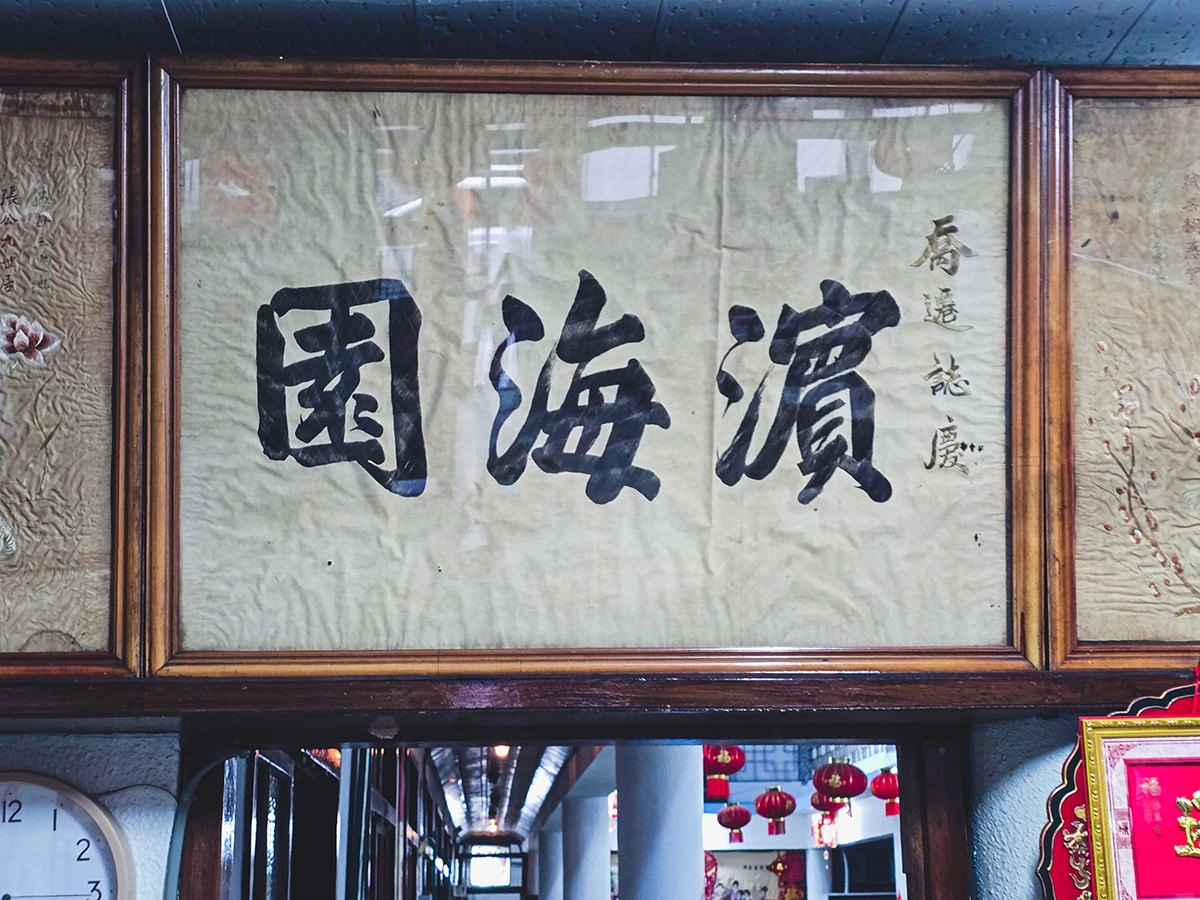 喬遷誌慶
濱海園
張公九世居
12
1
2
3